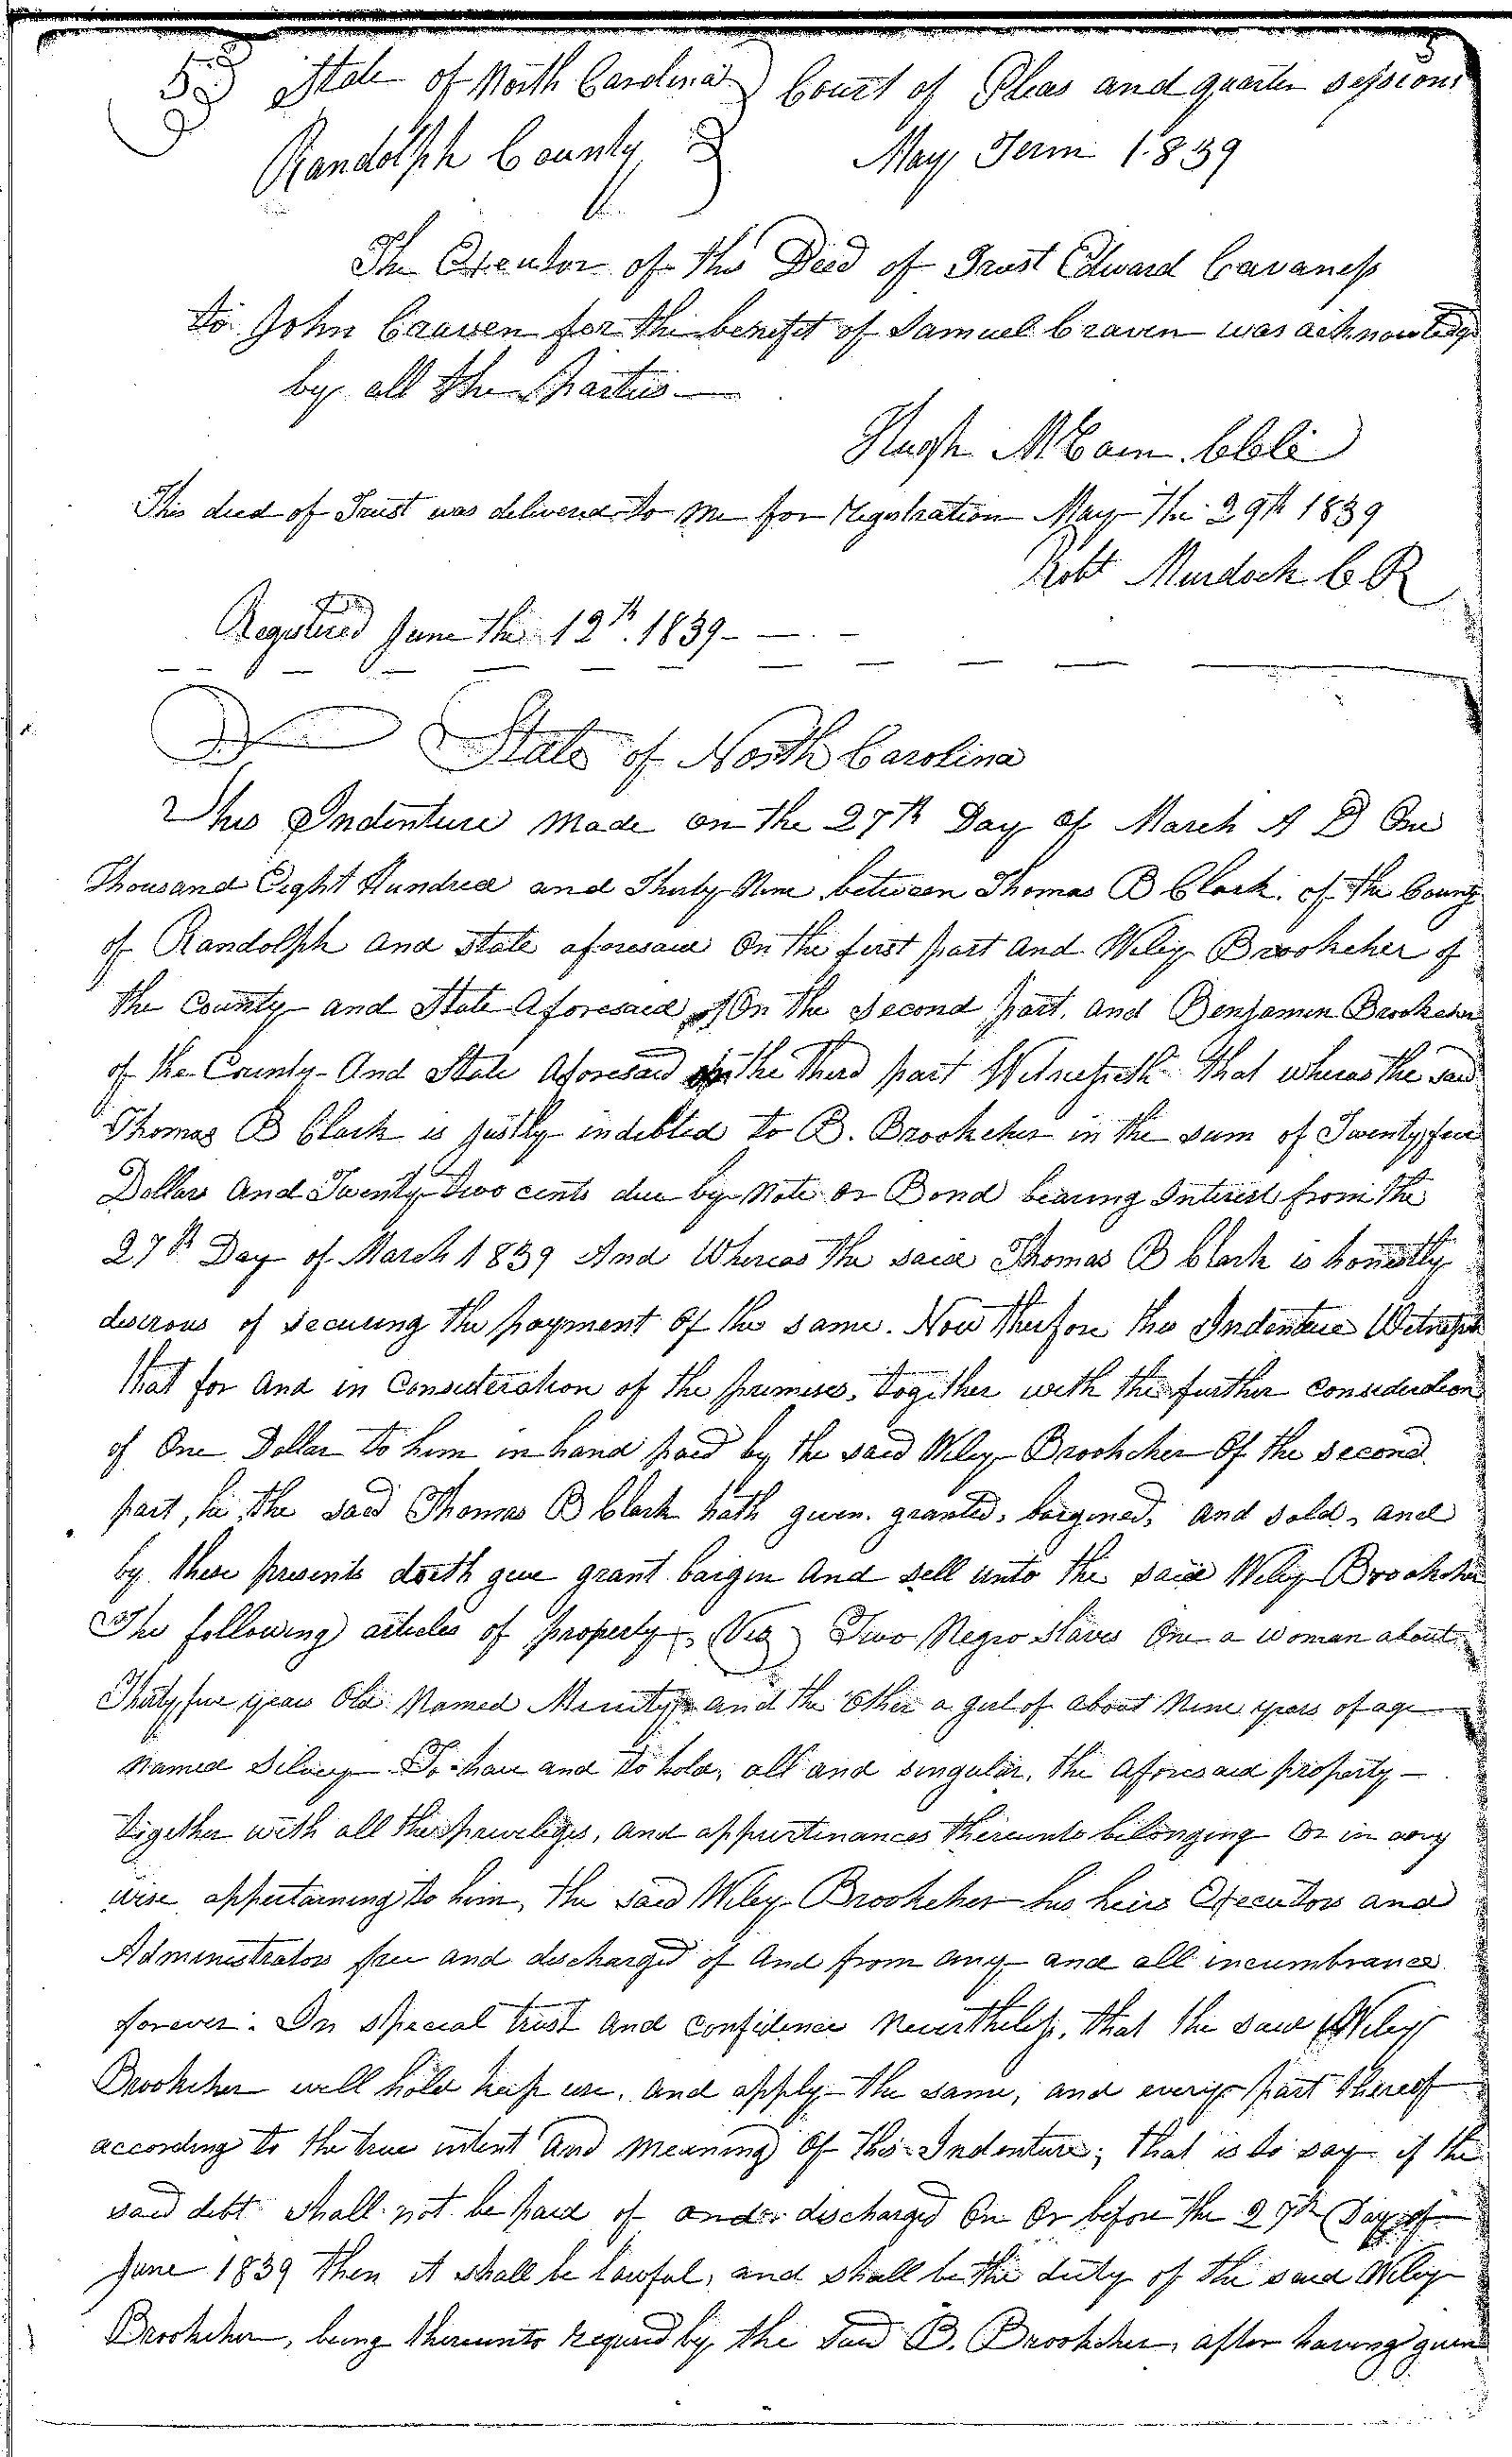 State of North Carolina } Court of Pleas and quarter sessions
Randolph County } May Term 1839
The Executor of this Deed of Trust Edward Cavaness
to John Craven for the benefit of Samuel Craven was acknowledge
by all the Parties
Hugh McCain Clk
This deed of Trust was delivered to me for Registration May the 29th 1839
Robt Murdock C R
Registered June the 12th. 1839
State of North Carolina
This Indenture made on the 27th Day of March A D One
Thousand Eight Hundred and Thirty Nine between Thomas B Clark of the County
of Randolph and state aforesaid On the first part and Wiley Brookcher of
the County and State Aforesaid On the Second part, and Benjamin Brookcher
of the County And State Aforesaid the third part Witnesseth that whereas the said
Thomas B Clark is justly indebted to B. Brookcher in the sum of Twenty five
Dollars and Twenty two cents due by Note or Bond bearing Interest from the
27th Day of March 1839 And Whereas the said Thomas B Clark is honestly
desirous of securing the payment of the same. Now therfore this Indenture Witnesseth
that for and in Consideration of the premises, together with the further Consideration
of One Dollar to him in hand paid by the said Wiley Brookcher Of the second
part, he, the said Thomas B Clark hath given. granted, bargined, and sold, and
by these presents doeth give grant bargin and sell unto the said Wiley Brookcher
The following articles of property, (Viz) Two Negro Slaves One a woman about
Thirty five years Old Named and the Other a girl of about Nine years of age
named Silvey To have and to hold, all and singular, the aforesaid property
together with all the priveliges, and appurtinances thereunto belonging Or in any
wise appertaining to him, the said Wiley Brookcher his heirs Executors and
Administrators free and discharged of and from any and all incumbrance
forever. In special trust and confidence nevertheless, that the said Wiley
Brookcher will hold keep use, and apply the same, and every part thereof
according to the true intent and meaning Of this Indenture; that is to say if the
said debt shall not be paid of and discharged On Or before the 27th Day of
June 1839 then it shall be lawful, and shall be the duty of the said Wiley
Brookcher, being thereunto requird by the said B. Brookcher, after having given